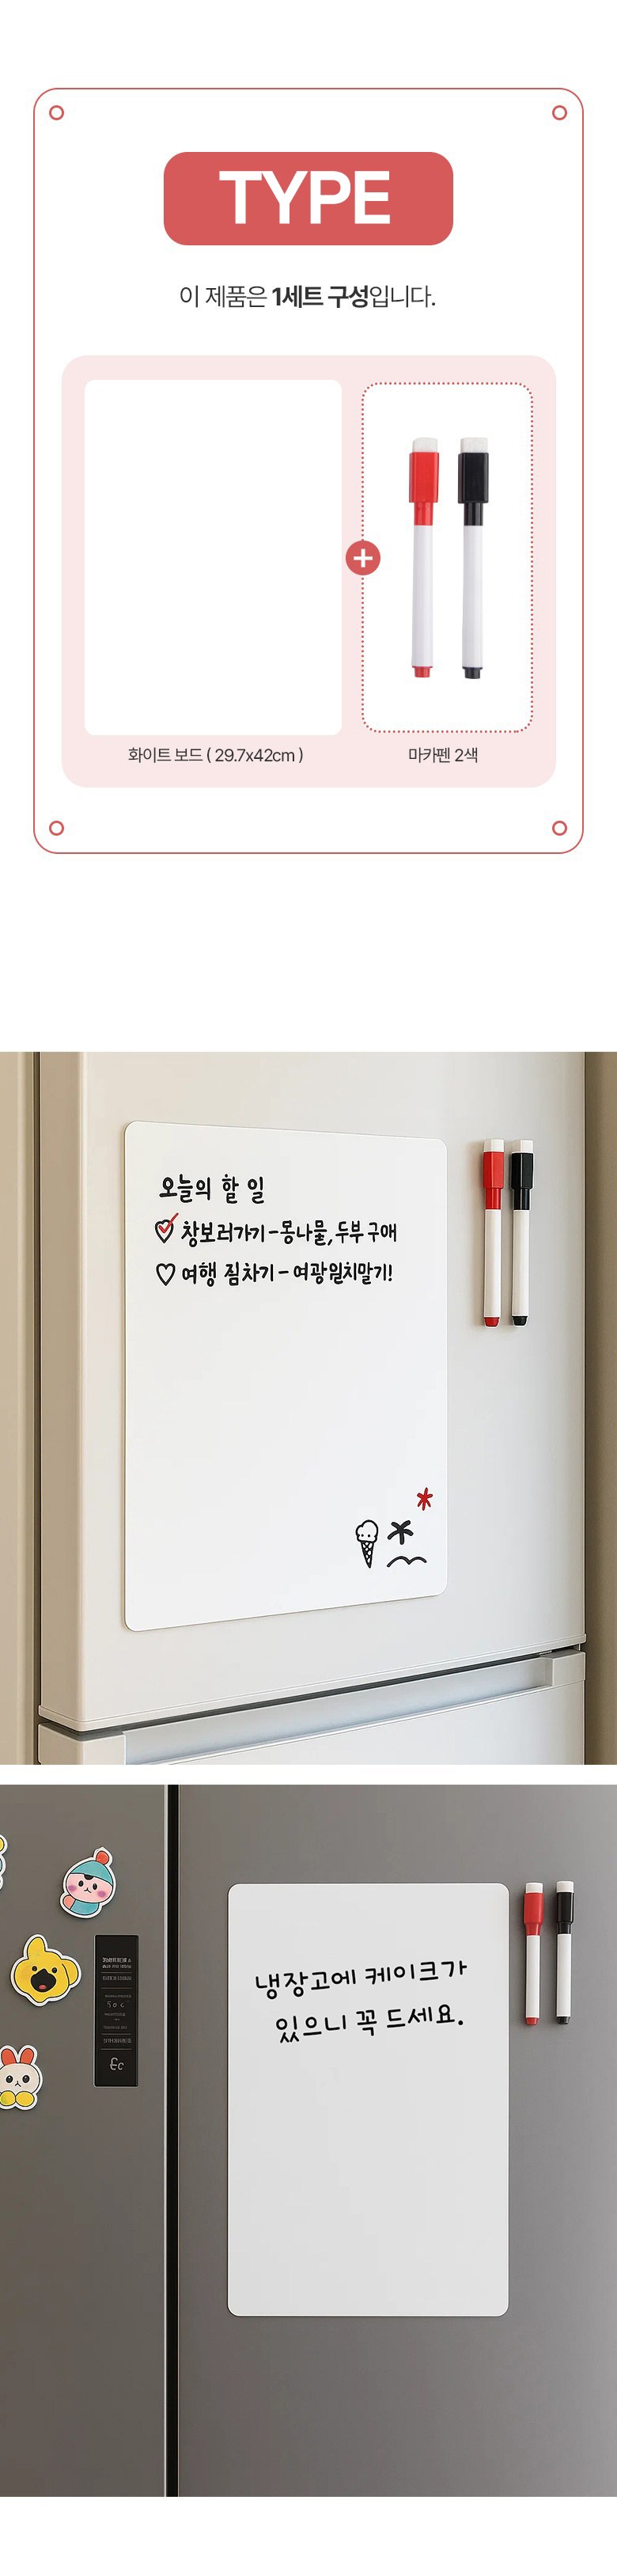 TYPE
이 제품은 1세트 구성입니다.
화이트 보드 ( 29.7x42cm )
마카펜 2색
오늘의 할 일
창보러가기-몽나물, 두부 구애
여행 짐차기 - 여광원치말기!
냉장고에 케이크가
있으니 꼭 드세요.